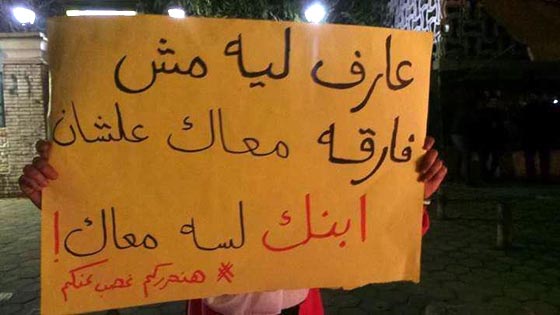 عارف ليه مش
فارقه معاك علشان
ابنك لسه معاك!
* هنحرركم غصب عنكم